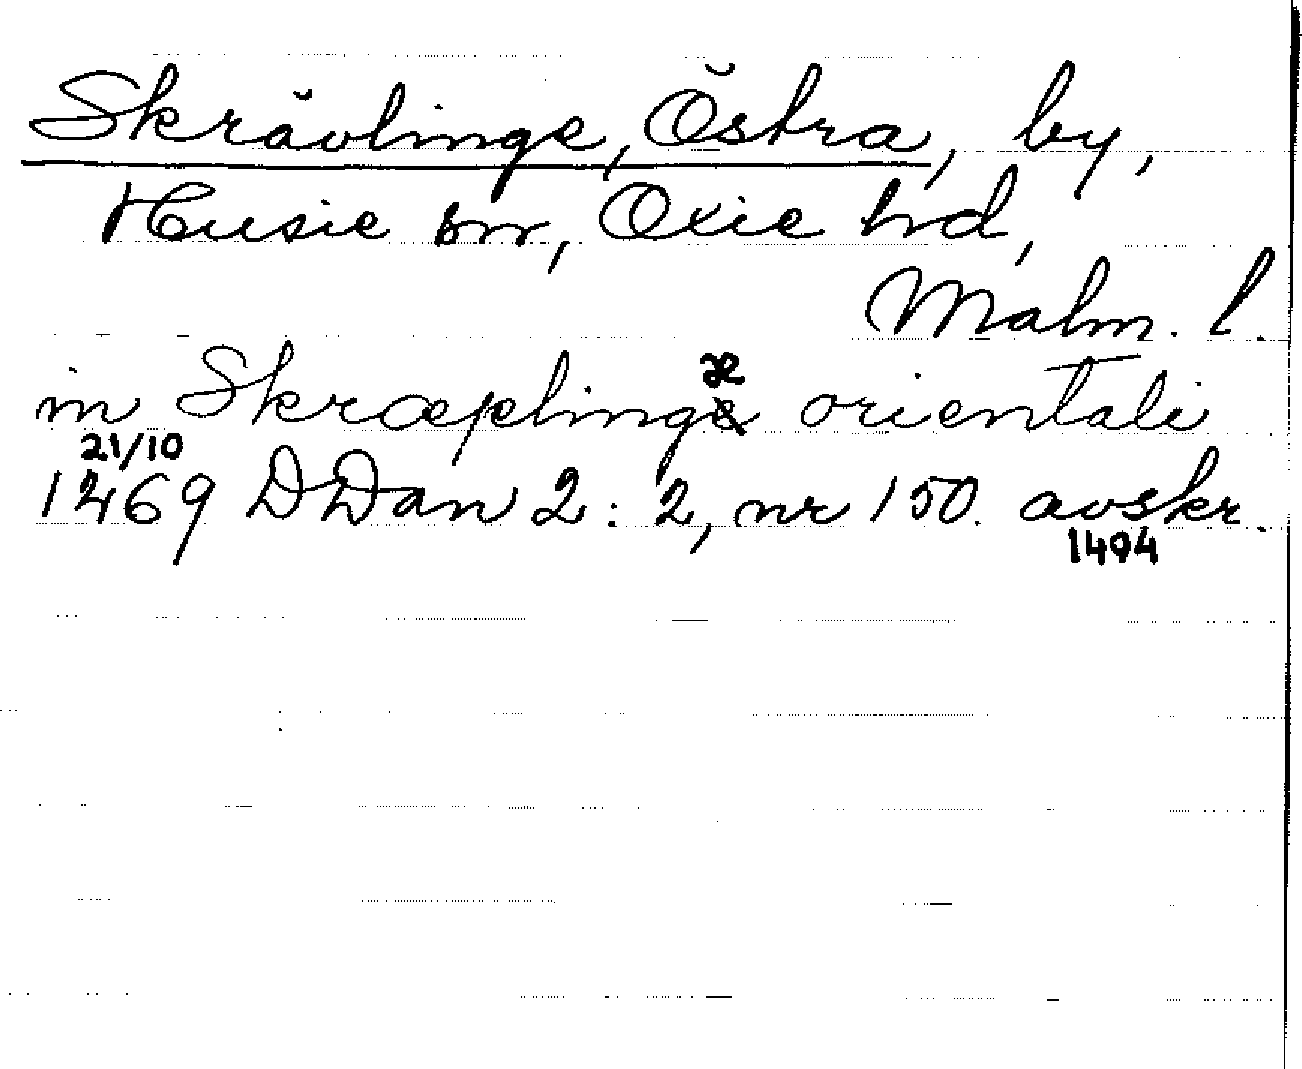 Skrävlinge, Östra, by,
Husie sn, Oxie hd,
Malm. l.
in Skræplingæ orientali
21/10
1269 DDan 2:2, nr 150. avskr.
1494